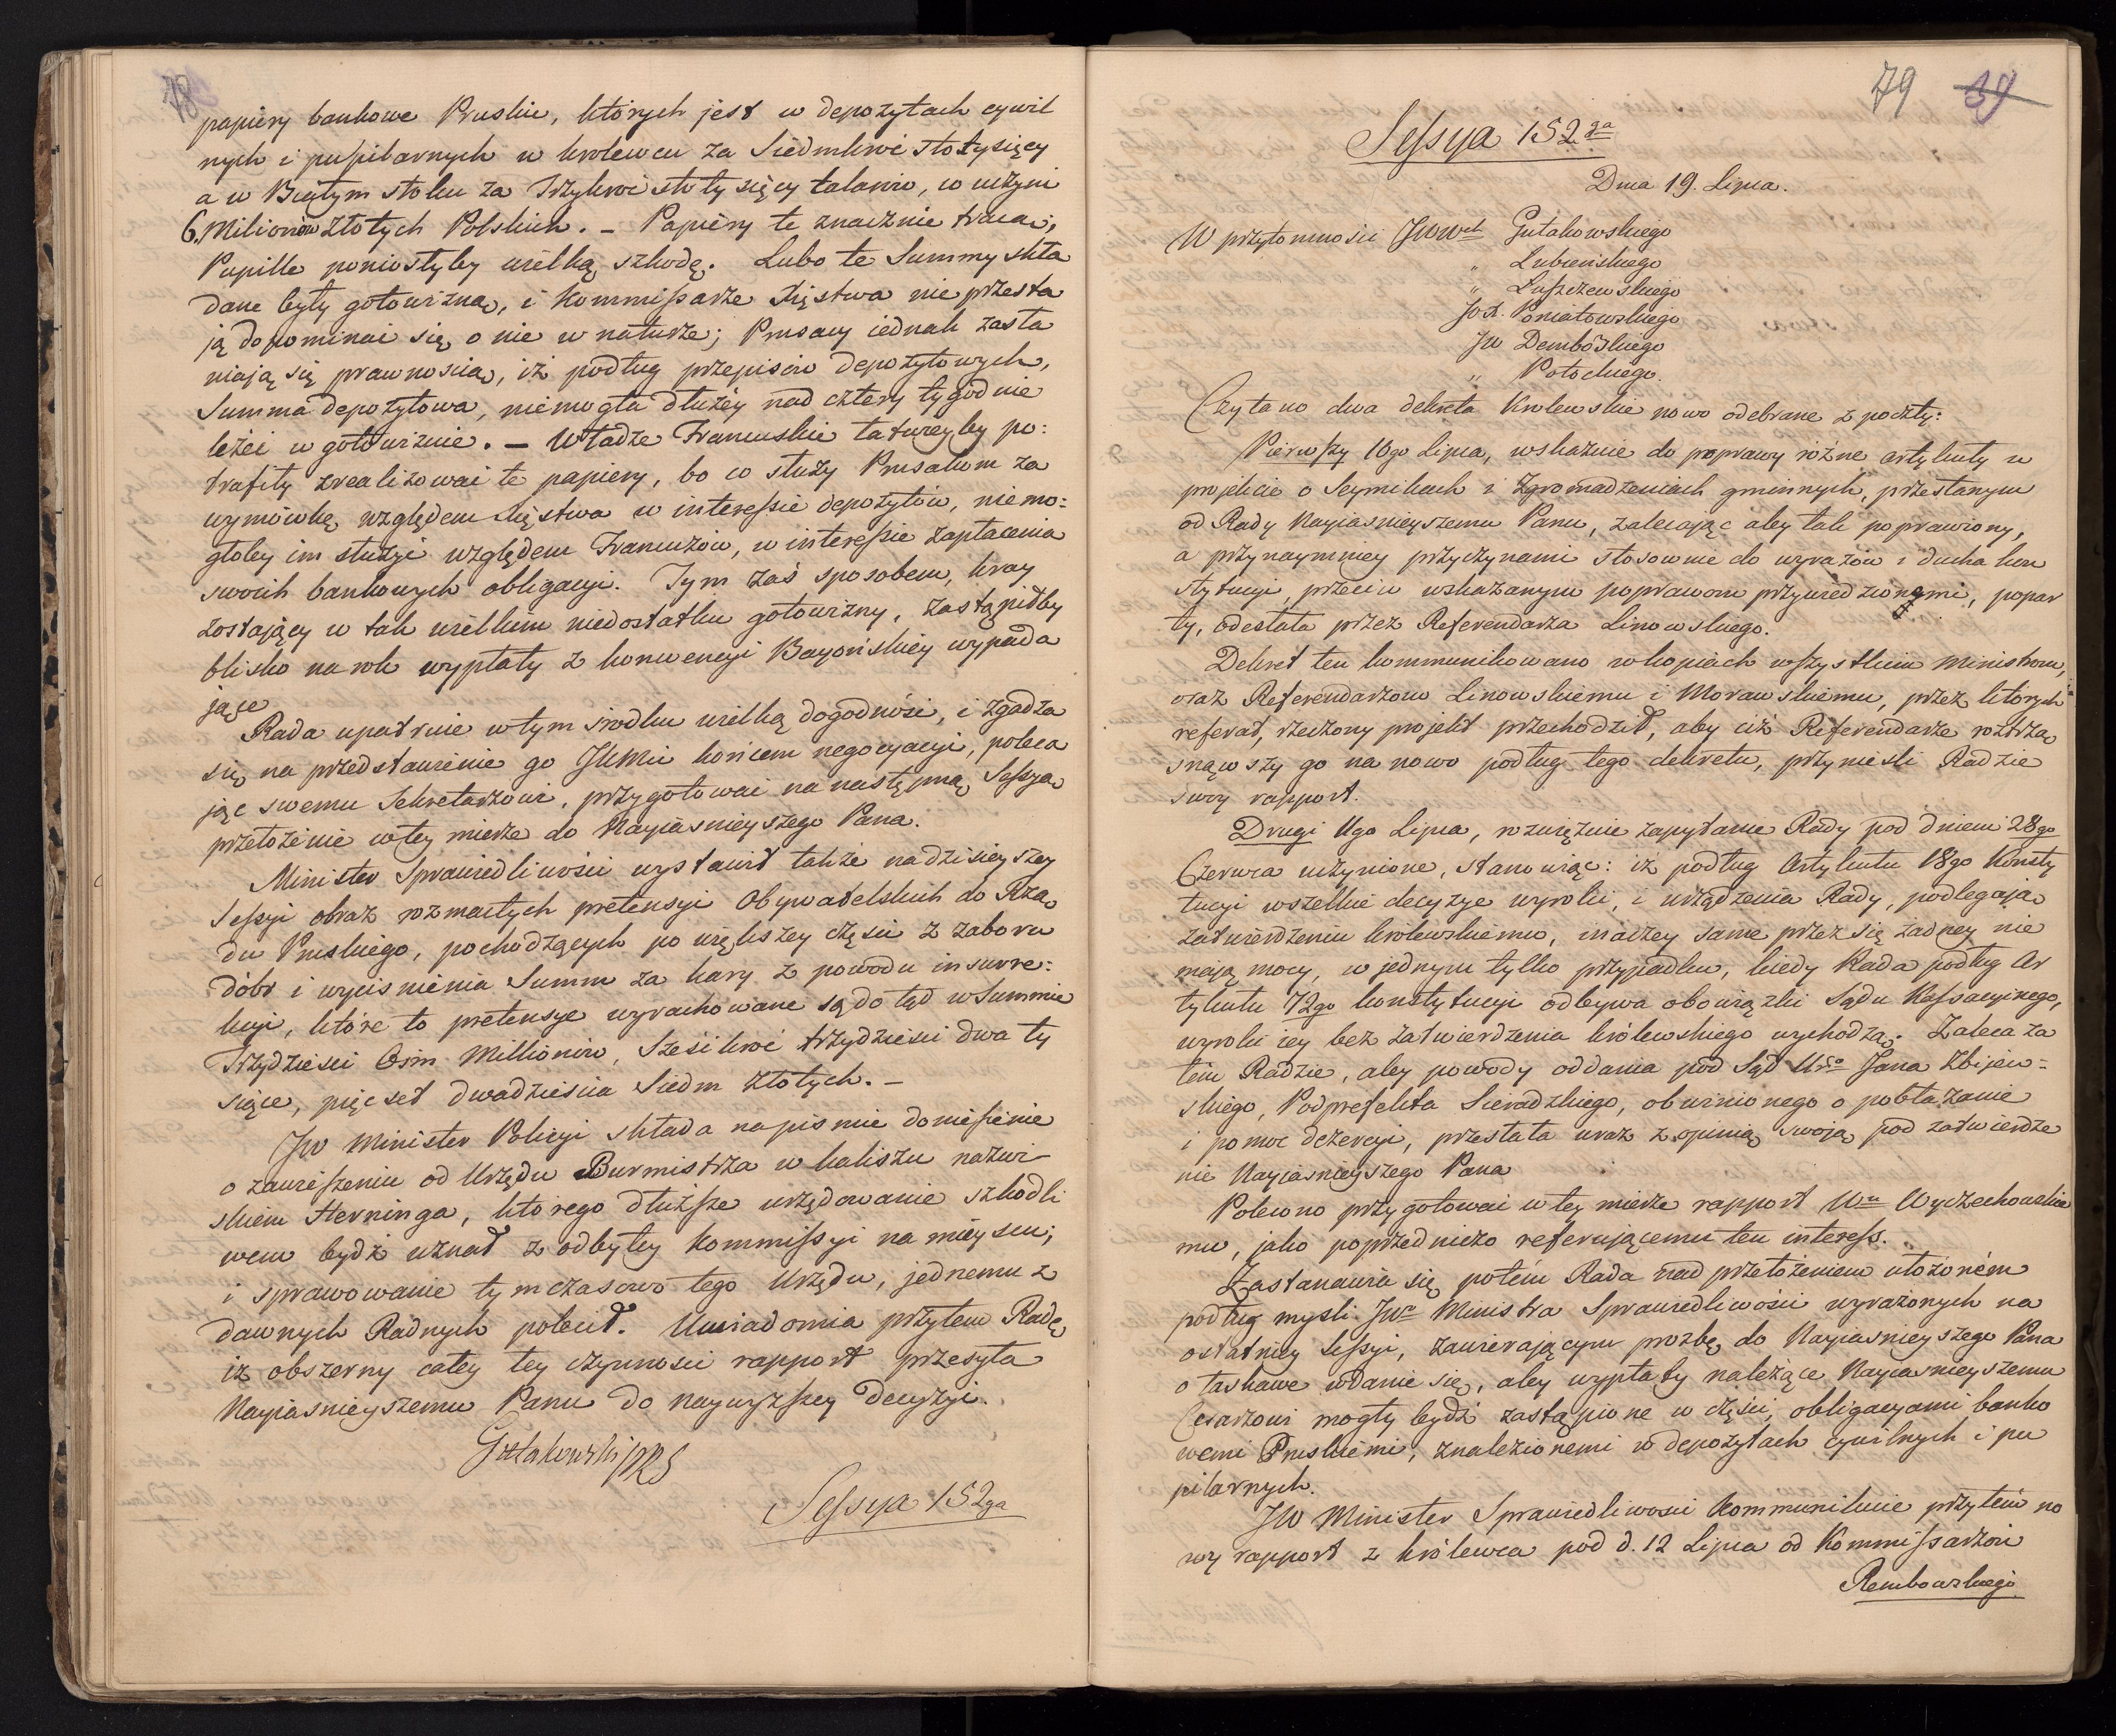 78
papiery bankowe Pruskie, których jest w depozytach cywil
nych i pupilarnych w krolewcu za Siedmkroć stotysięcy
a w Białym stoku za Trzykroć stotysięcy talarów, co uczyni
6. Milionów Złotych Polskich. – Papiéry te znacznie tracą;
Pupille poniosłyby wielką szkodę. Lubo te Summy skła
dane były gotowizną, i Kommissarze Xięstwa nie przesta
ją dopominać się o nie w naturze; Prusacy iednak zasta
niają się prawnością, iż podług przepisów depozytowych,
Summa depozytowa, niemogła dłużéy nad cztery tygodnie
leżéć w gotowiznie. – Władze Francuskie łatwieyby po:
trafiły zrealizować te papiery, bo co służy Prusakom za
wymówkę względem Xięstwa w interessie depozytów, niemo:
głoby im służyć względem Francuzów, w interessie zapłacenia
swoich bankowych obligacyi. Tym zaś sposobem, kray
zostający w tak wielkim niedostatku gotowizny, zastąpiłby
blisko na rok wypłaty z konwencyi Bayońskiey wypada
jące
Rada upatruie w tym środku wielką dogodność, i zgadza
się na przedstawienie go JKMci końcem negocyacyi, poleca
jąc swemu Sekretarzowi, przygotować na następną Sessyą
przełożenie w tey mierze do Nayiasnieyszego Pana.
Minister Sprawiedliwości wystawił także na dzisieyszey
Sessyi obraz rozmaitych pretensyi Obywatelskich do Rzą
du Pruskiego, pochodzących po większey części z zaboru
dóbr i wyciśnienia Summ za kary z powodu insurre:
kcyi, które to pretensye wyrachowane są dotąd w Summie
Trzydzieści Ośm Millionów, Sześćkroć trzydzieści dwa ty
siące, pięćset dwadzieścia Siedm Złotych. –
JW Minister Policyi składa na pismie doniesienie
o zawieszeniu od Urzędu Burmistrza w kaliszu nazwi–
skiem Herninga, którego dłuższe urzędowanie szkodli
wem bydź uznał z odbytey kommissyi na mieyscu;
i sprawowanie tymczasowo tego Urzędu, jednemu z
dawnych Radnych polecił. Uwiadomia przytem Radę,
iż obszerny całey tey czynności rapport przesyła
Nayiasnieyszemu Panu do naywyższey decyzyi.
Gutakowski PRS
Sessya 152ga
79 39
Sessya 152ga
Dnia 19. Lipca.
W przytomności JWWch Gutakowskiego
„ Lubieńskiego
„ Łuszczewskiego
JOX. Poniatowskiego
JW Dembowskiego
„ Potockiego.
Czytano dwa dekreta Krolewskie nowo odebrane z poczty:
Pierwszy 10go Lipca, wskazuie do poprawy różne artykuły w
projekcie o Seymikach i Zgromadzeniach gminnych, przesłanym
od Rady Nayiasnieyszemu Panu, zalecając aby tak poprawiony,
a przynaymniey przyczynami stosownie do wyrazów i ducha kon
stytucyi, przeciw wskazanym poprawom przywiedzionymi, popar
ty, odesłała przez Referendarza Linowskiego.
Dekret ten kommunikowano w kopiach wszystkim Ministrom,
oraz Referendarzom Linowskiemu i Morawskiemu, przez których
referat, rzeczony projekt przechodził, aby ciż Referendarze roztrzą
snąwszy go na nowo podług tego dekretu, przynieśli Radzie
swoy rapport.
Drugi 11go Lipca, rozwięzuie zapytanie Rady pod dniem 28go
Czerwca uczynione, stanowiąc: iż podług Artykułu 18go Konsty
tucyi wszelkie decyzye wyroki, i urządzenia Rady, podlegają
zatwierdzeniu królewskiemu, inaczey same przez się żadney nie
mają mocy, w jednym tylko przypadku, kiedy Rada podług Ar
tykułu 72go konstytucyi odbywa obowiązki Sądu Kassacyinego,
wyroki iey bez zatwierdzenia królewskiego wychodzą. Zaleca za
tém Radzie, aby powody oddania pod Sąd Uro Jana Zbijew=
skiego, Podprefekta Sieradzkiego, obwinionego o pobłażanie
i pomoc dezercyi, przesłała wraz z opinią swoją pod zatwierdze
nie Nayiasnieyszego Pana
Polecono przygotować w tey mierze rapport Wu Wyczechowskie
mu, jako poprzedniczo referującemu ten interess.
Zastanawia się potém Rada nad przełożeniem ułożoném
podług myśli JWo Ministra Sprawiedliwości wyrażonych na
ostatniey Sessyi, zawierającym prozbę do Nayiasnieyszego Pana
o łaskawe wdanie się, aby wypłaty należące Nayiasnieyszemu
Cesarzowi mogły bydź zastąpione w części, obligacyami banko
wemi Pruskiémi, znalezionemi w depozytach cywilnych i pu
pilarnych.
JW Minister Sprawiedliwości Kommunikuie przytém no
wy rapport z królewca pod d. 12 Lipca od Kommissarzów
Rembowskiego